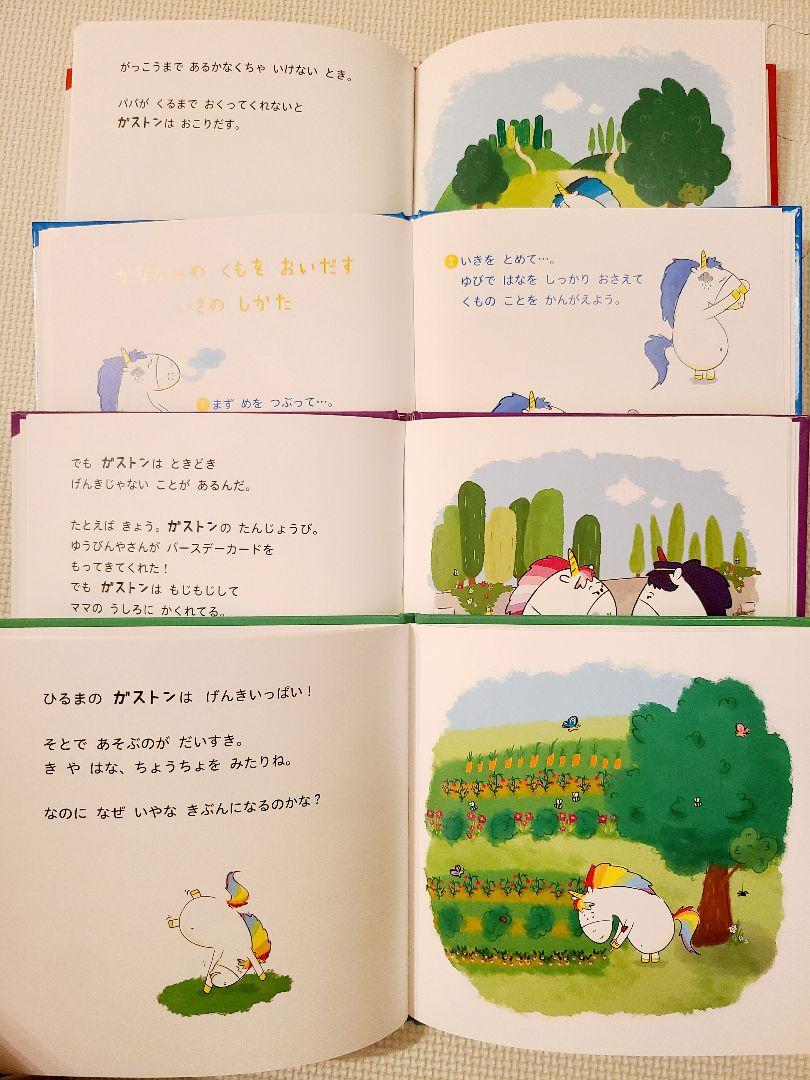 がっこうまで あるかなくちゃ いけない とき。
パパが くるまで おくってくれないと
ガストンは おこりだす。
かなしみの くもを おいだす
いきの しかた
1 まず めを つぶって…。
2 いきを とめて…。
ゆびで はなを しっかり おさえて
くもの ことを かんがえよう。
でも ガストンは ときどき
げんきじゃない ことが あるんだ。
たとえば きょう。ガストンの たんじょうび。
ゆうびんやさんが バースデーカードを
もってきてくれた！
でも ガストンは もじもじして
ママの うしろに かくれてる。
ひるまの ガストンは げんきいっぱい！
そとで あそぶのが だいすき。
き や はな、ちょうちょを みたりね。
なのに なぜ いやな きぶんになるのかな？